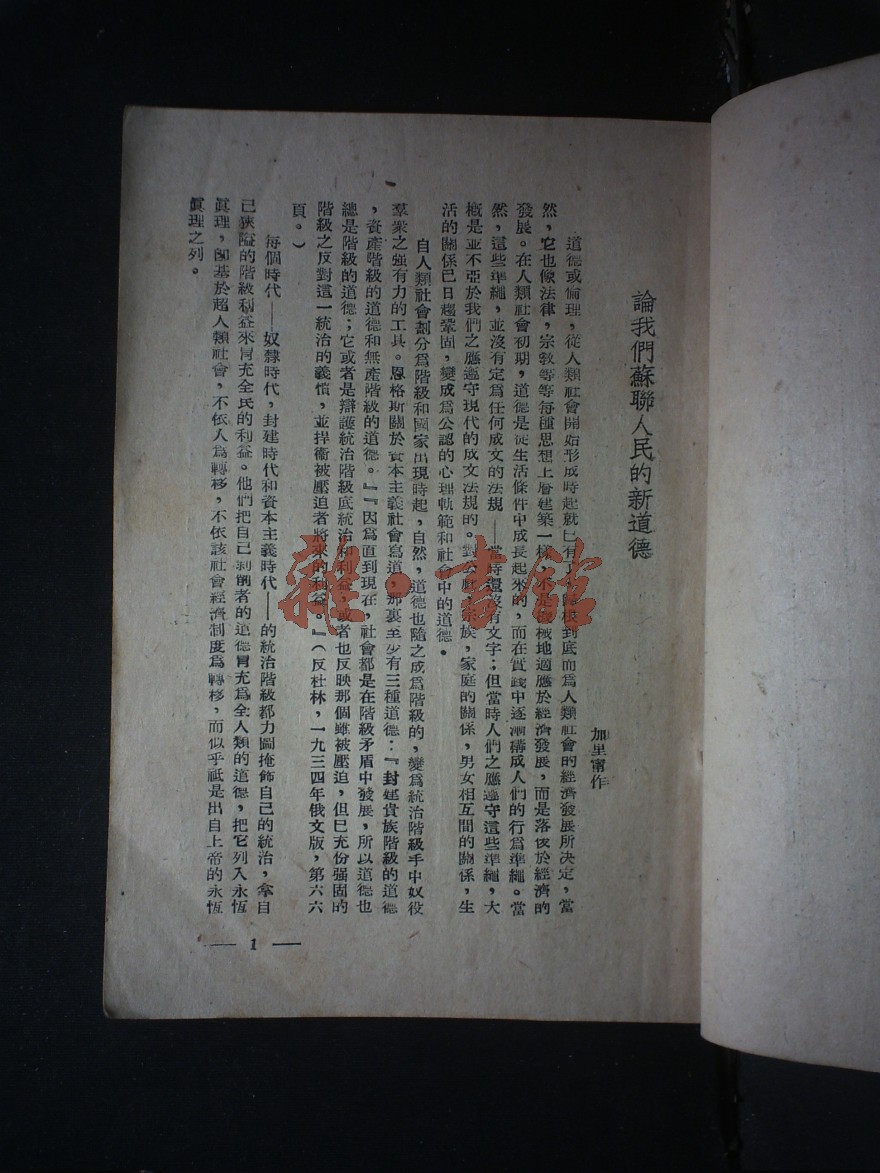 論我們蘇聯人民的新道德
加里甯作
道德或倫理，從人類社會開始形成時起就已有了，歸根到底而爲人類社會的經濟發展所決定，當
然，它也像法律，宗教等等每種思想上層建築一樣，不是機械地適應於經濟發展，而是落後於經濟的
發展。在人類社會初期，道德是從生活條件中成長起來的，而在實踐中逐漸構成人們的行爲準繩。當
然，這些準繩，並沒有定爲任何成文的法規——當時還沒有文字；但當時人們之應遵守這些準繩，大
概是並不亞於我們之應遵守現代的成文法規的。對公社，宗族，家庭的關係，男女相互間的關係，生
活的關係已日趨鞏固，變成爲公認的心理軌範和社會中的道德。
自人類社會劃分爲階級和國家出現時起，自然，道德也隨之成爲階級的，變爲統治階級手中奴役
羣衆之強有力的工具。恩格斯關於資本主義社會寫道，那裏至少有三種道德：『封建貴族階級的道德
，資產階級的道德和無產階級的道德。』『因爲直到現在，社會都是在階級矛盾中發展，所以道德也
總是階級的道德；它或者是辯護統治階級底統治和利益，或者也反映那個雖被壓迫，但已充份强固的
階級之反對這一統治的義憤，並捍衛被壓迫者將來的利益。』（反杜林，一九三四年俄文版，第六六
頁。）
每個時代——奴隸時代，封建時代和資本主義時代——的統治階級都力圖掩飾自己的統治，拿自
己狹隘的階級利益來冒充全民的利益。他們把自己剝削者的道德冒充爲全人類的道德，把它列入永恆
眞理，卽基於超人類社會，不依人爲轉移，不依該社會經濟制度爲轉移，而似乎祇是出自上帝的永恆
眞理之列。
— 1 —
雜·書館